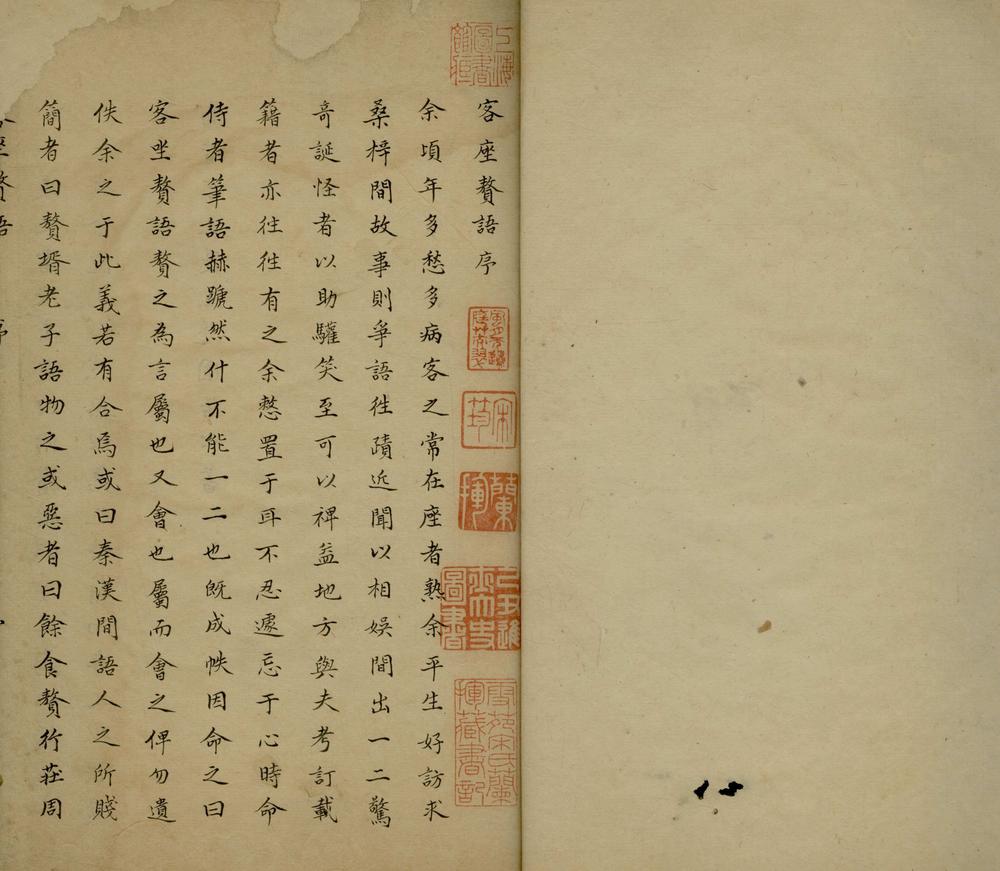 客座贅語序
余頃年多愁多病客之常在座者熟余平生好訪求
桑梓間故事則爭語往蹟近聞以相娛間出一二驚
奇誕怪者以助驩笑至可以裨益地方與夫考訂載
籍者亦往往有之余憖置于耳不忍遽忘于心時命
侍者筆語赫蹏然什不能一二也既成帙因命之曰
客坐贅語贅之為言屬也又會也屬而會之俾勿遺
佚余之于此義若有合焉或曰秦漢間語人之所賤
簡者曰贅壻老子語物之或惡者曰餘食贅行莊周
上海圖書館藏
宋筠
蘭揮
圖書
雪苑宋氏蘭揮藏書記